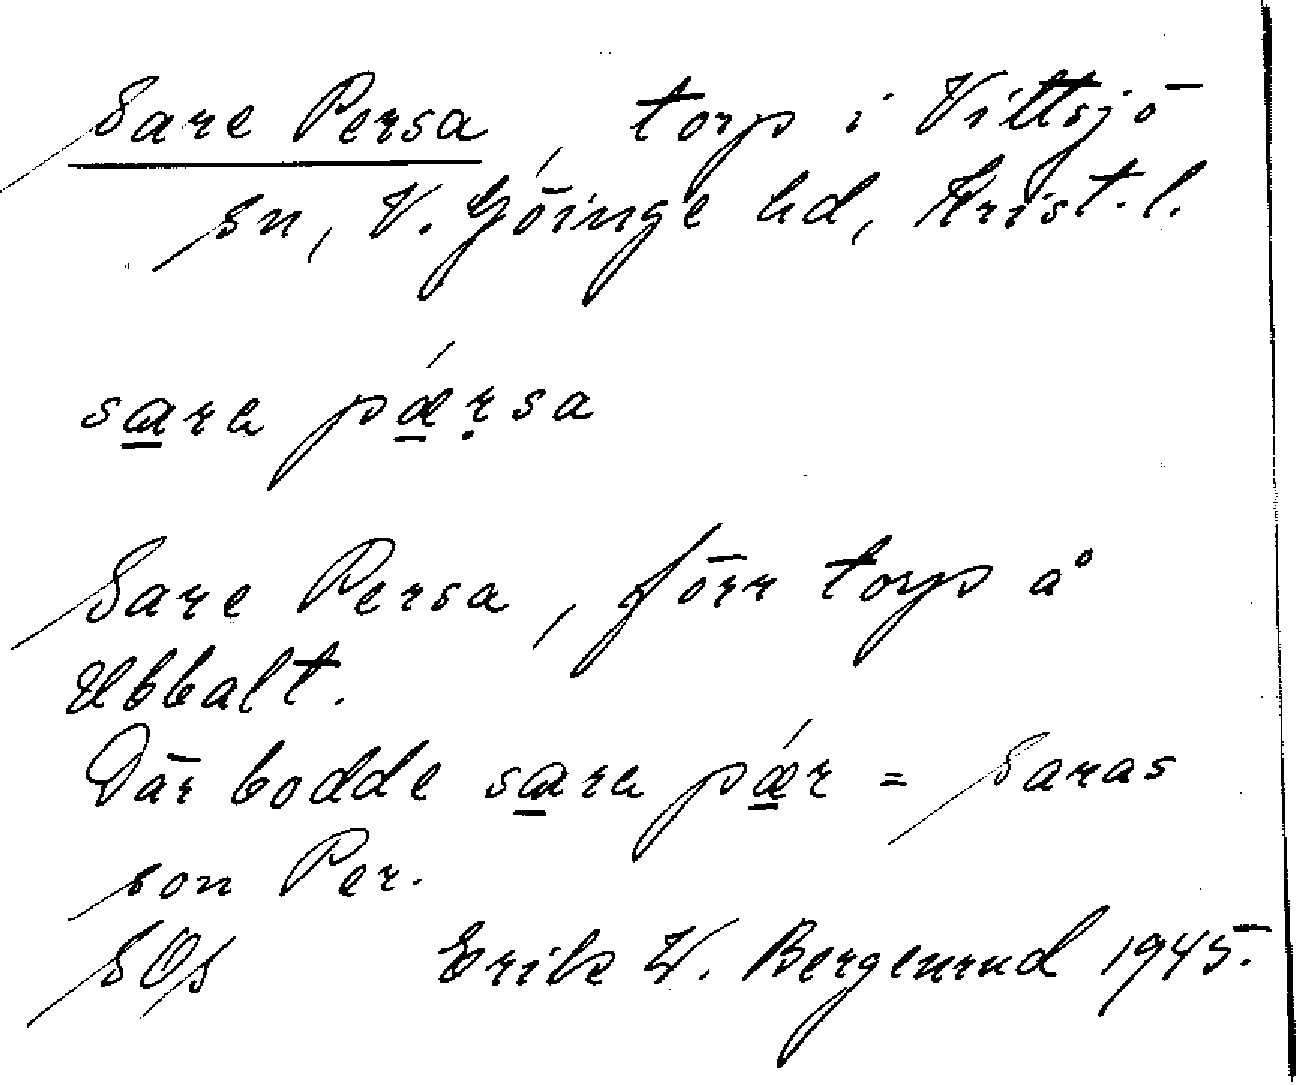 Sare Persa, torp i Vittsjö
sn, V. Göinge hd, Krist. l.
sara pǽṛsa
Sare Persa, förr torp å
Ubbalt.
Där bodde sara pǽr = Saras
son Per.
SOs Erik W. Bergenrud 1945.